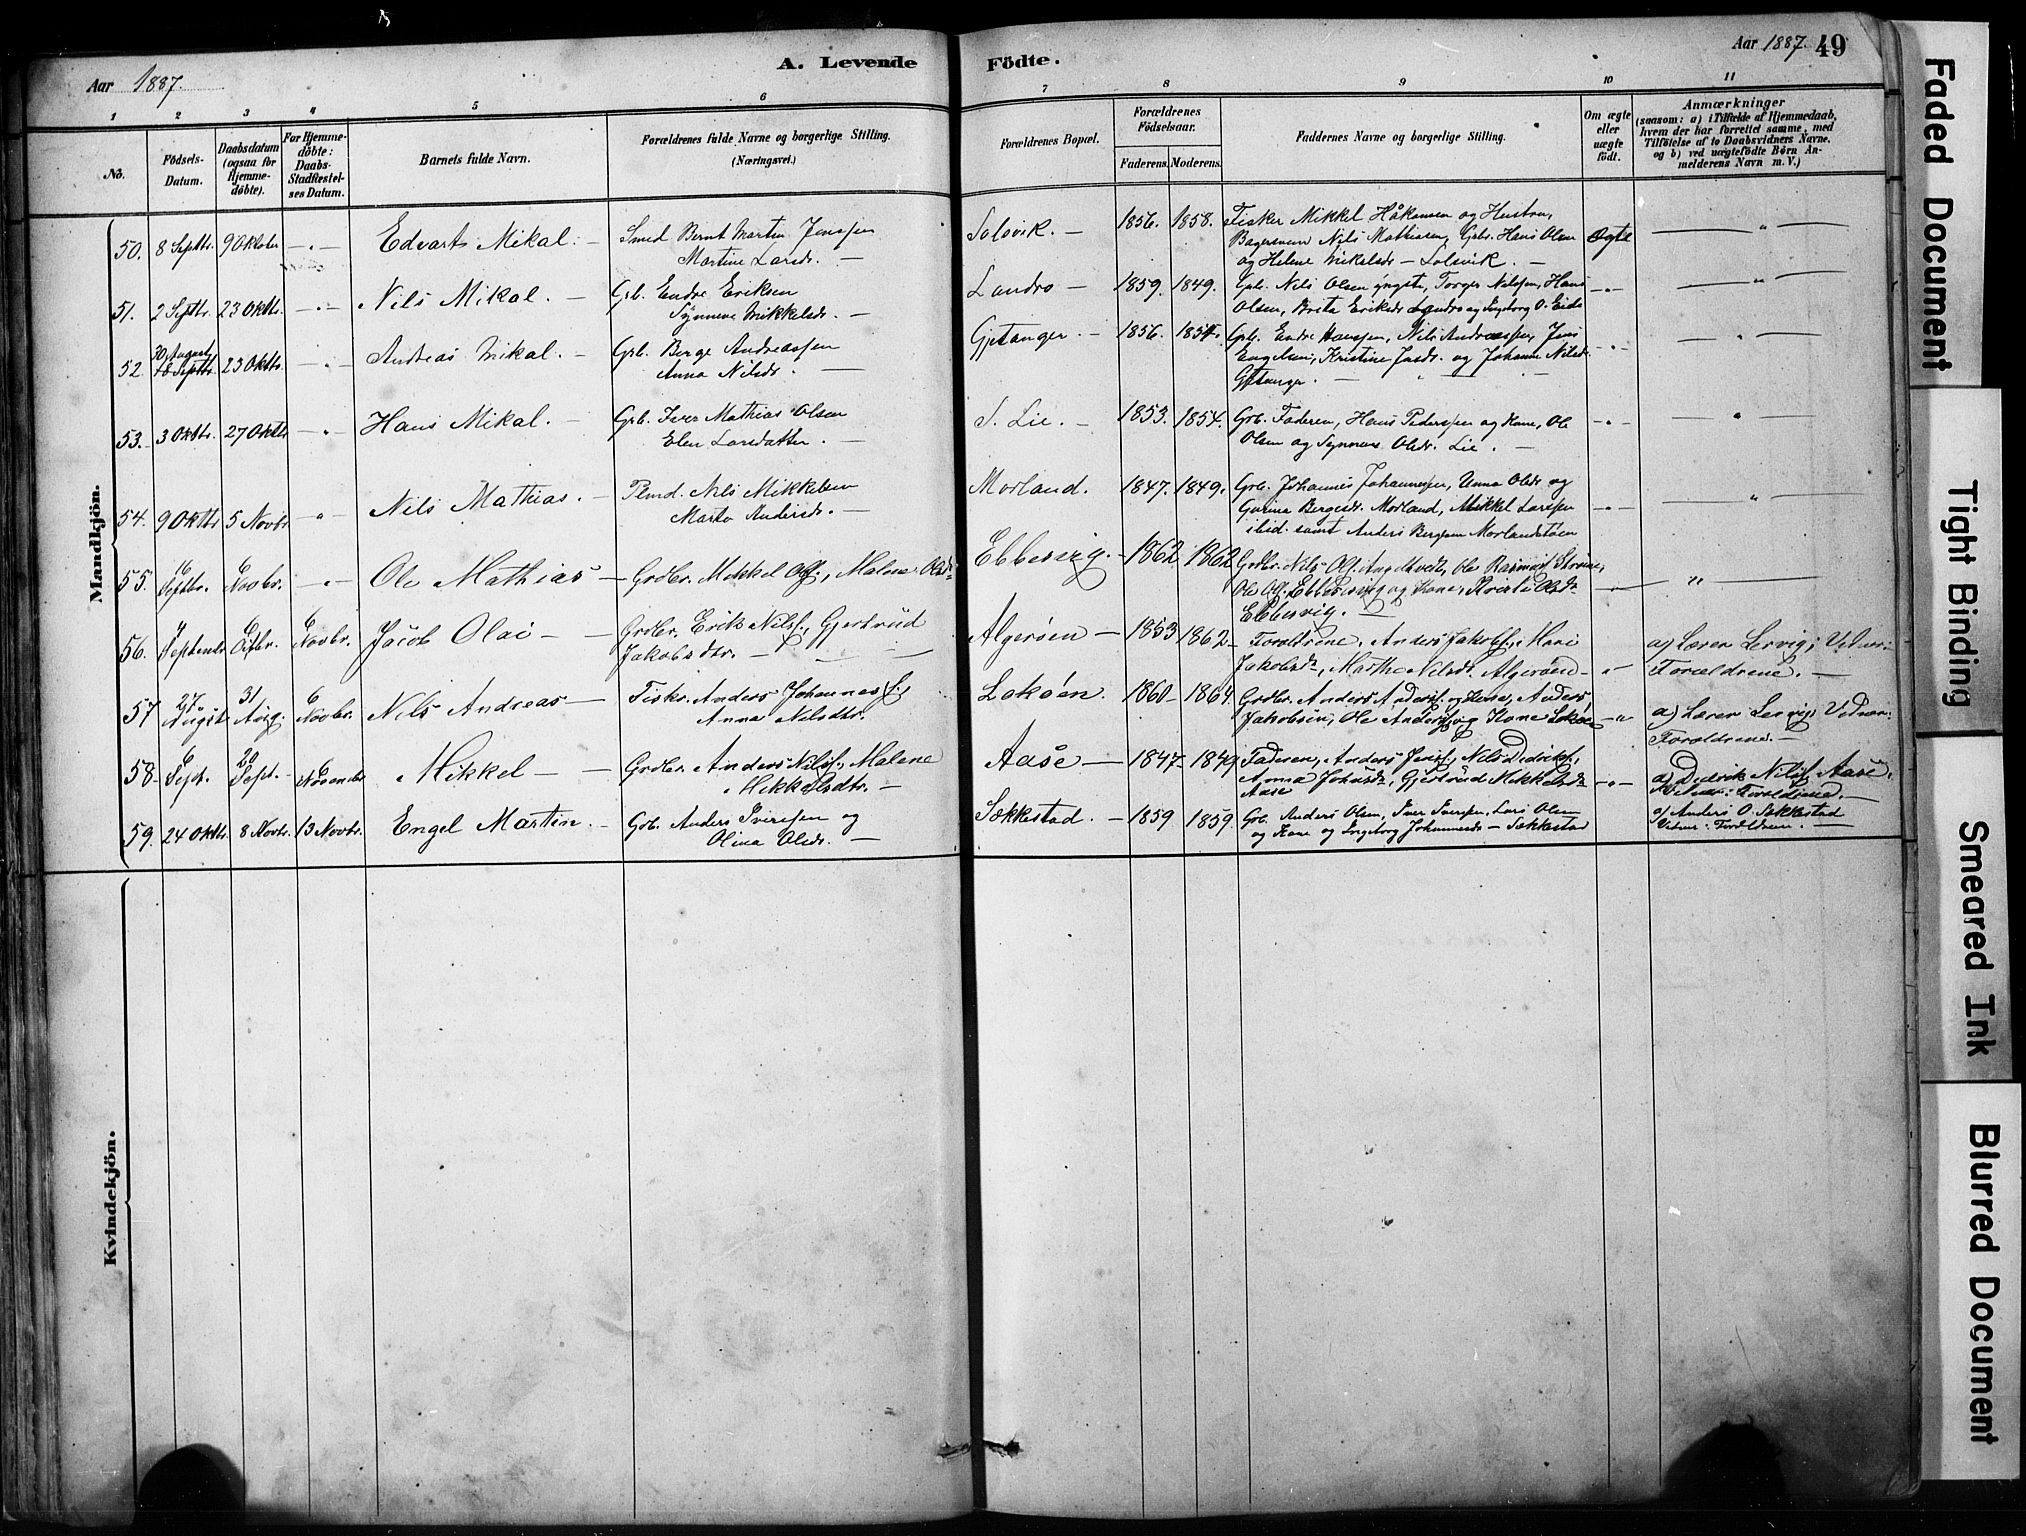 Aar 1887.
A. Levende
Födte.
Aar 1887. 49
1 2 3 4 5 6 7 8 9 10 11
No.
Födsels-
Datum.
Daabsdatum
(ogsaa for
Hjemme-
döbte).
For Hjemme-
döbte:
Daabs-
Stadfæstel-
ses Datum.
Barnets fulde Navn.
Forældrenes fulde Navne og borgerlige Stilling.
(Næringsvei.)
Forældrenes Bopæl.
Forældrenes
Födselsaar.
Faderens. Moderens.
Faddernes Navne og borgerlige Stilling.
Om ægte
eller
uægte
födt.
Anmærkninger
(saasom: a) i Tilfælde af Hjemmedaab,
hvem der har forrettet samme, med
Tilföielse af to Daabsvidners Navne,
og b) ved uægtefödte Börn An-
melderens Navn m. V.)
Mandkjön.
50. 8 Septbr. 9 Oktober - " - Edvart Mikal. - Smed Bernt Martin Jenssen
Martine Larsdr. -
Solsvik. - 1856. 1858. Fisker Mikkel Håkonsen og Hustru,
Nils Mathiesen, Grbr. Hans Olsen
og Helene Mikelsdr - Solsvik. -
Ægte
51. 2 Septbr. 23 Oktbr. - " - Nils Mikal. - Grb. Endre Eriksen
Synneve Mikkelsdr. -
Landro - 1859. 1849. Grb. Nils Olsen yngste, Torger Nilssen, Hans
Olsen, Brita Eriksdr Landro og Ingeborg O. Eide
52. 30 August 18 Septbr. 23 Oktbr. - " - Andreas Mikal. - Grb. Berge Andreassen
Anna Nilsdr. -
Gjetanger - 1856. 1854. Grb. Endre Hanssen, Nils Andreassen, Jens
Engelsen, Kristine Jnsdr. og Johanne Nilsdr.
Gjetanger. -
53. 3 Oktbr. 27 Oktbr - " - Hans Mikal. - Grb. Iver Mathias Olsen
Elen Larsdatter. -
S. Lie. - 1853. 1854. Grb. Faderen, Hans Pederssen og Kone, Ole
Olsen og Synneve Olsdr. Lie. -
54. 9 Oktbr 5 Novbr - " - Nils Mathias. - Nils Mikkelsen
Marta Andersdr. -
Morland. 1847. 1849. Grb. Johannes Johannessen, Anna Olsdr og
Gurina Bergesdr. Morland, Mikkel Larssen
ibid. samt Anders Morlandstøen
55. 16 Septbr. 6 Novbr. - " - Ole Mathias - Grdbr. Mikkel Olss., Malene Olsdr
Ebbesvig. - 1862 1862 Grdbr. Nils Olss. Angeltveit, Ole Rasmuss. Strømme,
Ole Olss. Ebbesvig og Kone, Kristi Olsdr
Ebbesvig. -
56. Septembr 6 Octbr. 6 Novbr. Jacob Olai - Grdbr. Erik Nilss., Gjertrud
Jakobsdtr. -
Algerøen - 1853 1862 Foreldrene, Anders Jakobss., Mari
Jakobsdr, Marthe Nilsdr Algerøen -
a) Læren Lervig; Vidner:
Forældrene. -
57 27 August 31 Aug. 6 Novbr. Nils Andreas - Fiskr. Anders Johanness.,
Anna Nilsdtr.
Lokøen 1860 - 1864 Grdbr. Anders Anderss. og Kone, Anders
Jakobsen, Ole Anderss. og Kone Lokøen
a) Læren Lervig, Vidner:
Foreldrene. -
58 - 6 Sept. 20 Sept. 6 November Mikkel - Grdbr. Anders Nilss., Malene
Mikkelsdtr. -
Aase - 1847 - 1849 Faderen, Anders Jenss., Nils Didrikss.,
Anna Johnsdr, Gjertrud Mikkelsdr
Aase
a) Didrik Nilss. Aase,
Vidner: Foreldrene. -
59. 24 Oktbr. 8 Novbr. 13 Novbr. Engel Martin. - Grb. Anders Iverssen og
Olina Olsdr. -
Sækkestad. - 1859 1859 Grb. Anders Olsen, Iver Iversen, Lars Olsen
og Kone og Ingeborg Johannesdr - Sækkestad
a) Anders O. Sækkestad
Vidner: Foreldrene. -
Kvindekjön.
Faded Document
Tight Binding
Smeared Ink
Blurred Document